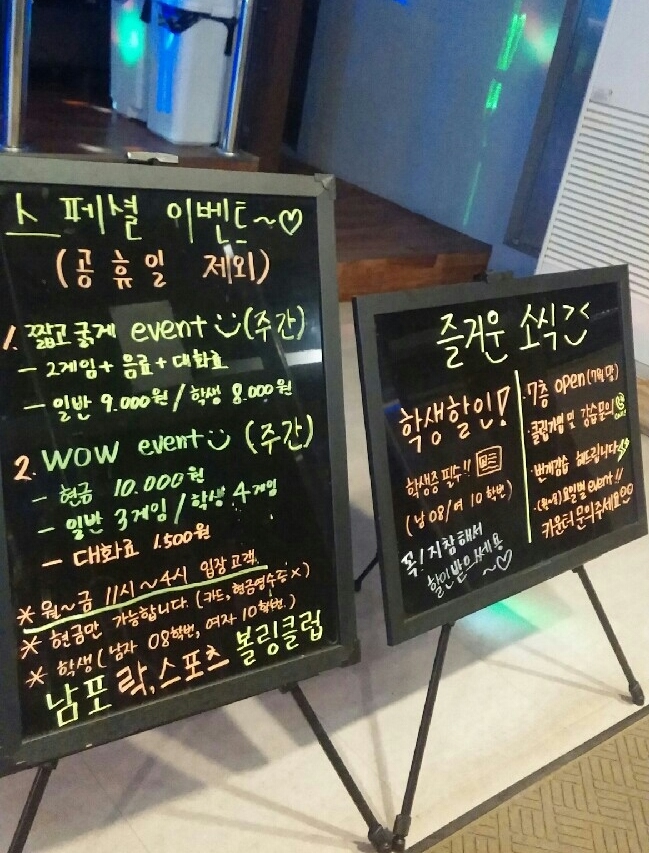 스페셜 이벤트~♡
(공휴일 제외)
1. 짧고 굵게 event (주간)
- 2게임 + 음료 + 대화료
- 일반 9.000원 / 학생 8.000원
2. WOW event (주간)
- 현금 10.000원
- 일반 3게임 / 학생 4게임
- 대화료 1.500원
* 월~금 11시~4시 입장고객
* 현금만 가능합니다. (카드, 현금영수증 X)
* 학생 (남자 08학번, 여자 10학번.)
남포 락, 스포츠 볼링클럽
즐거운 소식
학생할인!
학생증 필수!!
(남 08/여 10 학번)
꼭! 지참해서
할인받으세용
~♡
· 7층 open (7월 말)
· 클럽가입 및 강습문의
· 번개강습 해드립니다
· 요일별 event!!
카운터 문의주세요